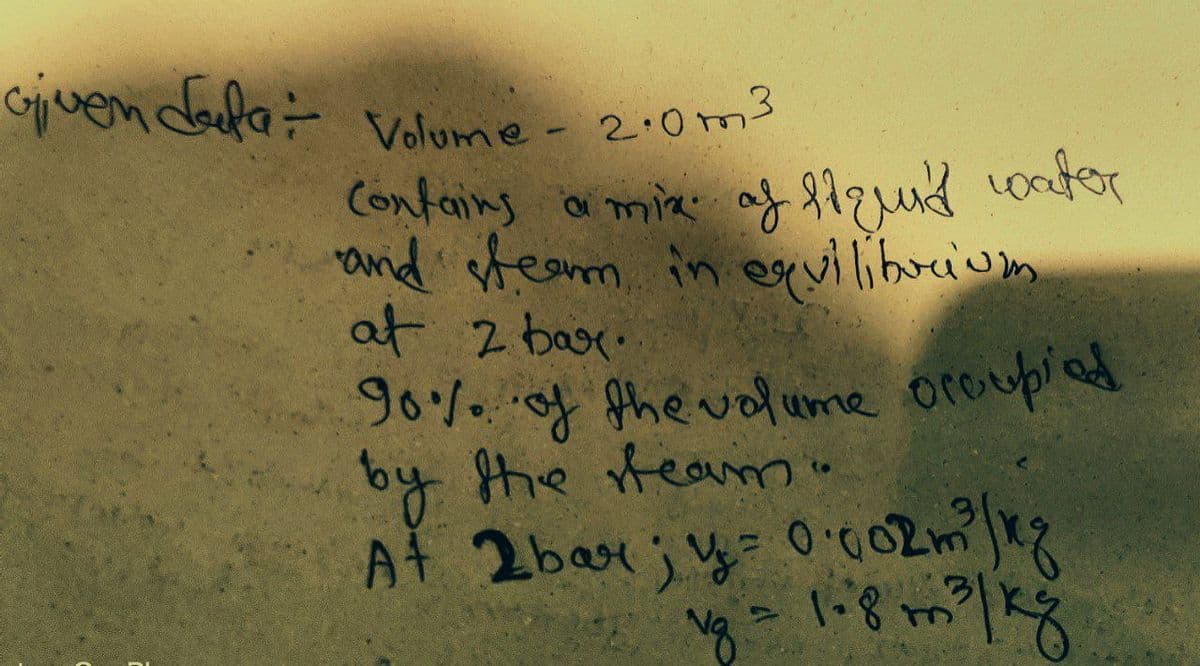 Given data:- Volume - 2.0 m³
Contains a mix. of liquid water
and steam in equilibrium
at 2 bar.
90% of the volume occupied
by the steam.
At 2 bar; vf = 0.002 m³/kg
vg = 1.8 m³/kg